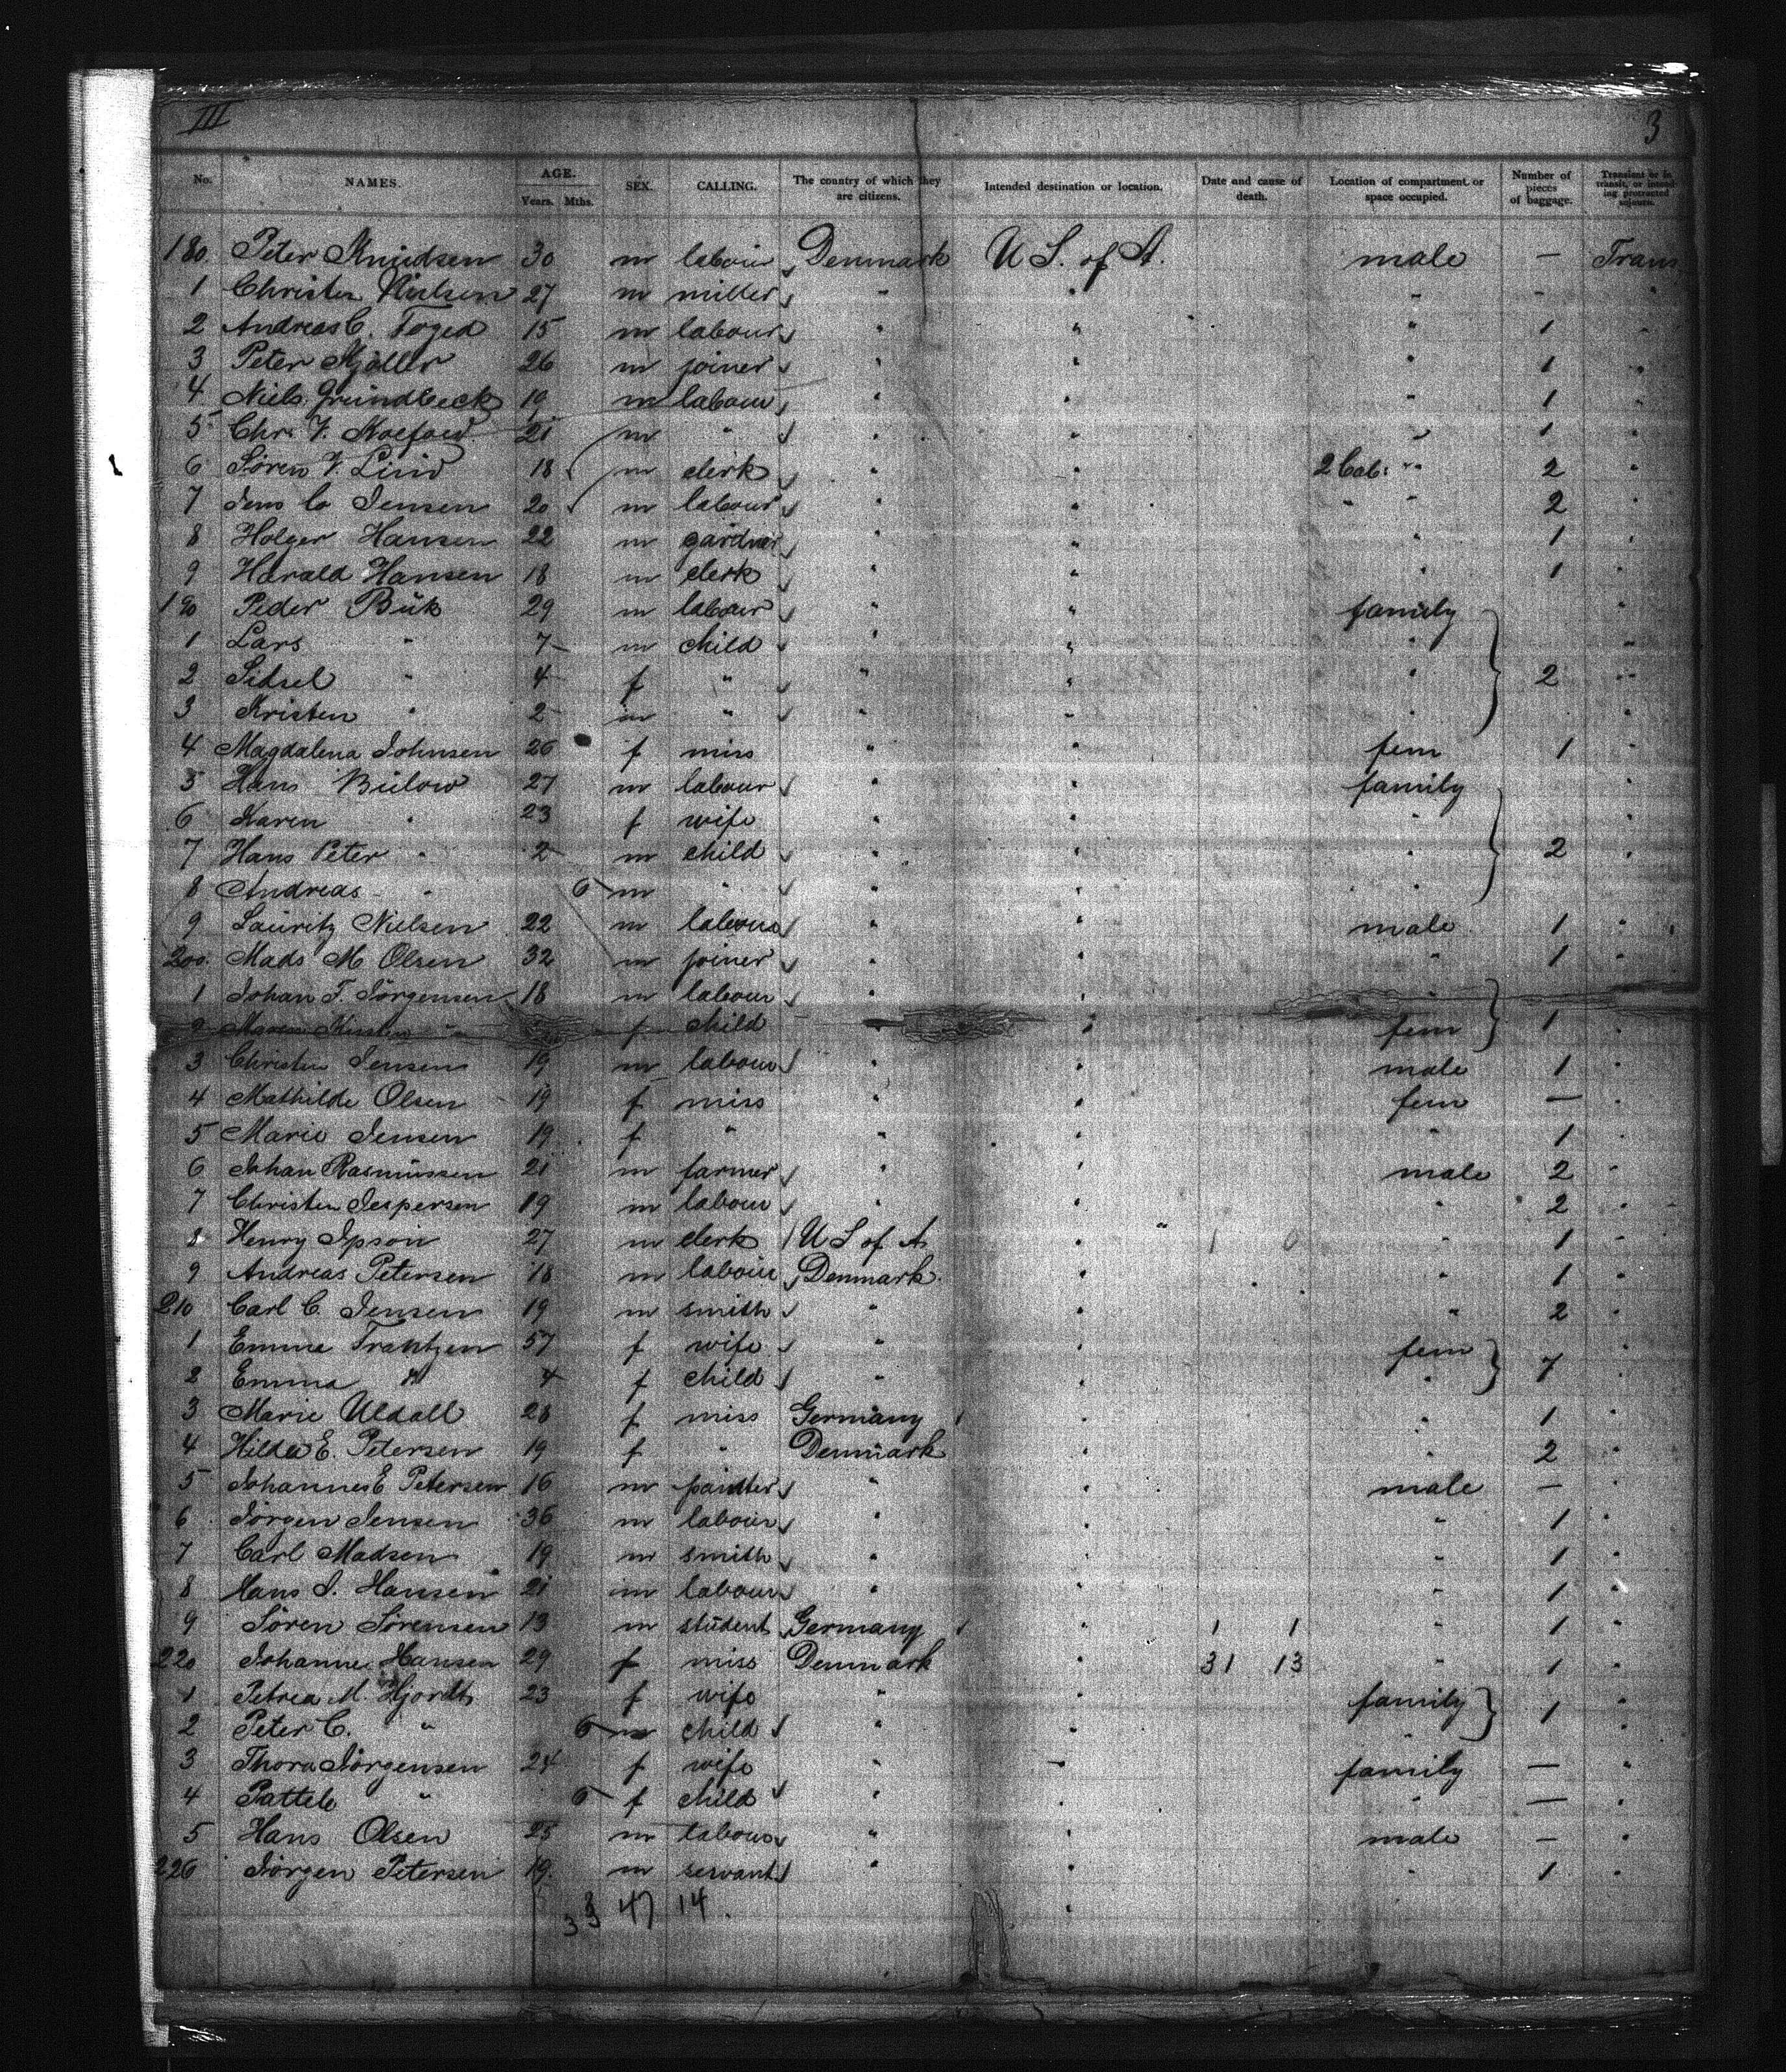 III 3
No. NAMES. AGE. Years. Mths. SEX. CALLING. The country of which they are citizens. Intended destination or location. Date and cause of death. Location of compartment or space occupied. Number of pieces of baggage. Transient or in transit, or intending protracted sojourn.
180. Peter Knudsen 30 m labour Denmark U S. of A. male — Trans
1 Christen Nielsen 27 m miller " " " - "
2 Andreas C. Foged 15 m labour " " " 1 "
3 Peter Kjøller 26 m joiner " " " 1 "
4 Niels Grundbeck 19 m labour " " " 1 "
5 Chr. V. Koefoed 21 m " " " " 1 "
6 Sören V. Lind 18 m clerk " " 2 Cab: " 2 "
7 Jens C Jensen 20 m labour " " " " 2 "
8 Holger Hansen 22 m gardner " " " 1 "
9 Harald Hansen 18 m clerk " " " 1 "
190 Peder Bük 29 m labour " " family "
1 Lars " 7 m child " " " "
2 Sidsel " 4 f " " " " 2 "
3 Kristen " 2 m " " " " "
4 Magdalena Johnsen 26 f miss " " fem 1 "
5 Hans Bülow 27 m labour " " family "
6 Karen " 23 f wife " " " "
7 Hans Peter " 2 m child " " " 2 "
8 Andreas " 6 m " " " " "
9 Lauritz Nielsen 22 m labour " " male 1 "
200. Mads M Olsen 32 m joiner " " " 1 "
1 Johan F. Jörgensen 18 m labour " " "
2 Maren " f child " fem 1 "
3 Christen Jensen 19 m labour " " male 1 "
4 Mathilde Olsen 19 f miss " " fem — "
5 Marie Jensen 19 f " " " " 1 "
6 Johan Rasmüssen 21 m farmer " " male 2 "
7 Christen Jespersen 19 m labour " " " 2 "
8 Henry Ipson 27 m clerk U S of A " " 1 "
9 Andreas Petersen 18 m labour Denmark " " 1 "
210 Carl C. Jensen 19 m smith " " " 2 "
1 Emma Frantzen 57 f wife " " fem
2 Emma " 4 f child " " " 7 "
3 Marie Uldall 28 f miss Germany " " 1 "
4 Hilda E. Petersen 19 f " Denmark " " 2 "
5 Johannes E Petersen 16 m painter " " male — "
6 Jörgen Jensen 36 m labour " " " 1 "
7 Carl Madsen 19 m smith " " " 1 "
8 Hans J. Hansen 21 m labour " " " 1 "
9 Sören Sörensen 13 m student Germany " 1 1 " 1 "
220 Johanne Hansen 29 f miss Denmark " 31 13 " 1 "
1 Petrea M. Hjordt 23 f wife " " family 1 "
2 Peter C. " 6 m child " " " "
3 Thora Jörgensen 24 f wife " " family — "
4 " 6 f child " " " — "
5 Hans Olsen 25 m labour " " male — "
226 Jörgen Petersen 19. m servant " " " 1 "
33 47 14